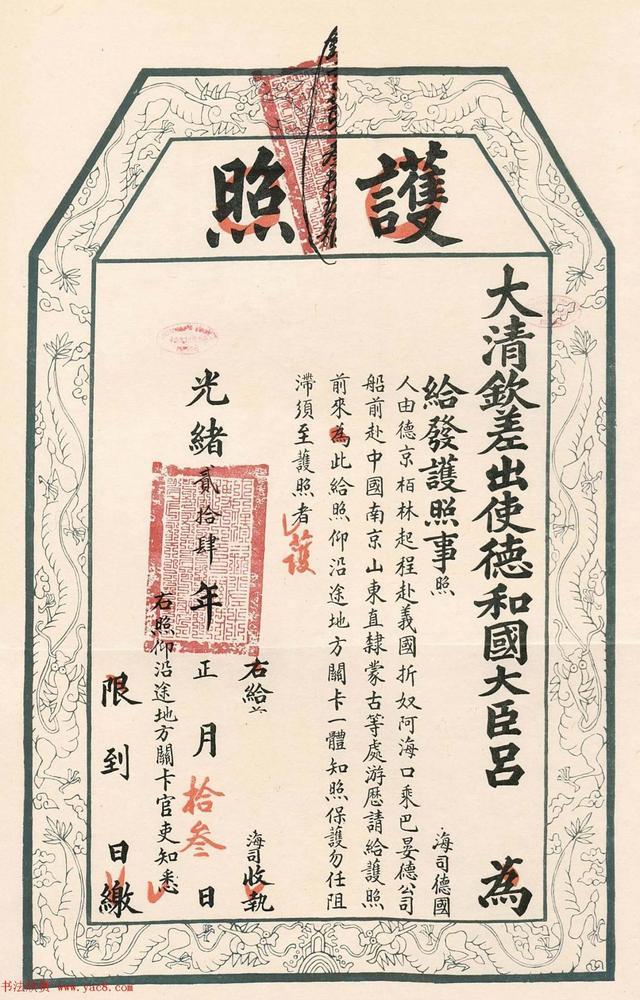 護照
大清欽差出使德和國大臣呂 為
給發護照事照 海司德國
人由德京栢林起程赴義國折奴阿海口乘巴晏德公司
船前赴中國南京山東直隸蒙古等處游歷請給護照
前來為此給照仰沿途地方關卡一體知照保護勿任阻
滯須至護照者
護
右給 海司收執
光緒貳拾肆年正月拾叁日
右照仰沿途地方關卡官吏知悉
限到 日繳
书法欣赏 www.yac8.com